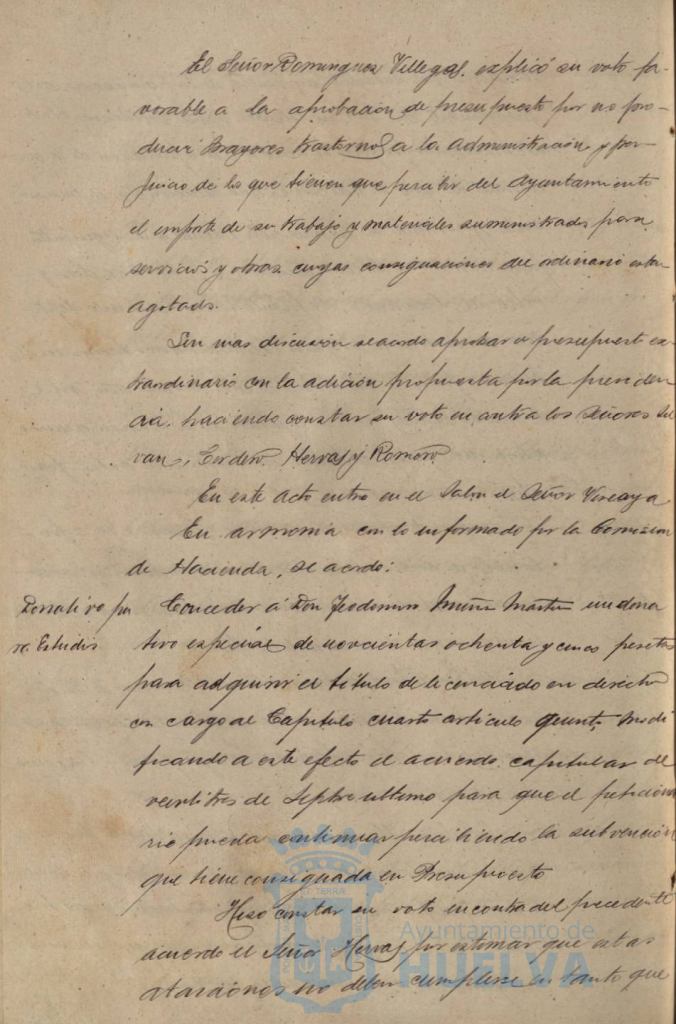 El Señor Dominguez Villegas, explicó su voto fa-
vorable a la aprobacion de presupuesto por no pro-
ducir mayores trastornos a la administracion y per-
juicio de lo que tienen que percibir del Ayuntamiento
el importe de su trabajo y materiales suministrados para
servicios y obras cuyas consignaciones del ordinario estan
agotads.
Sin mas discusion se acordo aprobar el presupuesto ex-
traordinario con la adición propuesta por la presiden-
cia, haciendo constar su voto en contra los Señores
Cordero, Hervas y Romero
En este acto entro en el Salon el Señor Vizcaya
En armonia con lo informado por la Comision
de Hacienda, se acordo:
Donativo pa
ra Estudis
Conceder á Don Teodomiro Muñiz Martin un dona
tivo especial de novcientas ochenta y cinco pesetas
para adquirir el titulo de licenciado en derecho
con cargo al Capitulo cuarto articulo quinto, modi
ficando a este efecto el acuerdo capitular del
veintitres de Septre ultimo para que el peticiona
rio pueda continuar percibiendo la subvención
que tiene consignada en Presupuesto
Hizo constar su voto en contra del precedente
acuerdo el Señor Hervas por estimar que estas
no deben cumplirse en tanto que
Ayuntamiento de
HUELVA